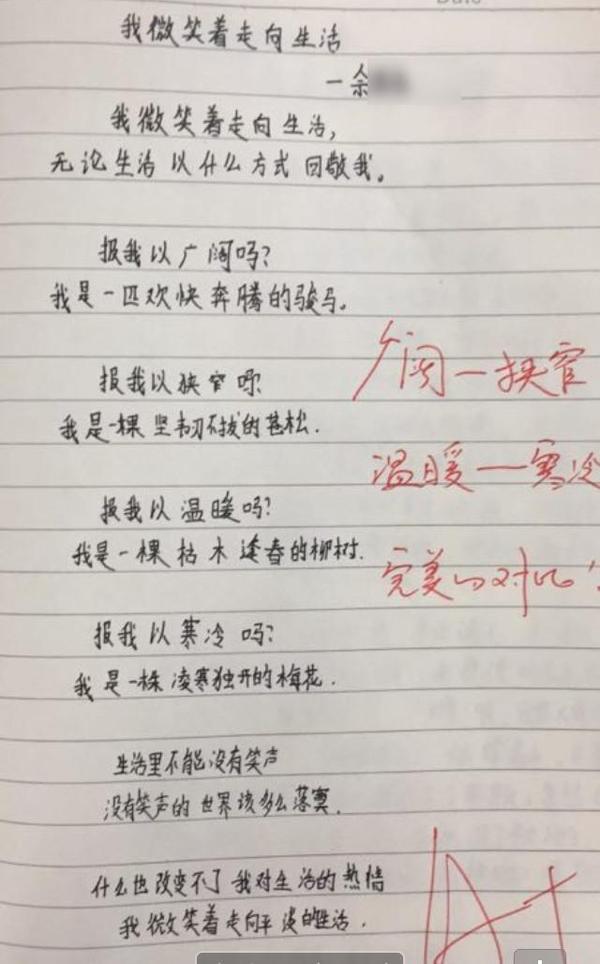 我微笑着走向生活
一余
我微笑着走向生活,
无论生活以什么方式回敬我。
报我以广阔吗?
我是一匹欢快奔腾的骏马。
报我以狭窄吗?
我是一棵坚韧不拔的苍松.
报我以温暖吗?
我是一棵枯木逢春的柳树.
报我以寒冷吗?
我是一株凌寒独开的梅花.
生活里不能没有笑声
没有笑声的世界该多么落寞.
什么也改变不了我对生活的热情
我微笑着走向平淡的生活.
广阔一狭窄
温暖一寒冷
完美的对比
A+